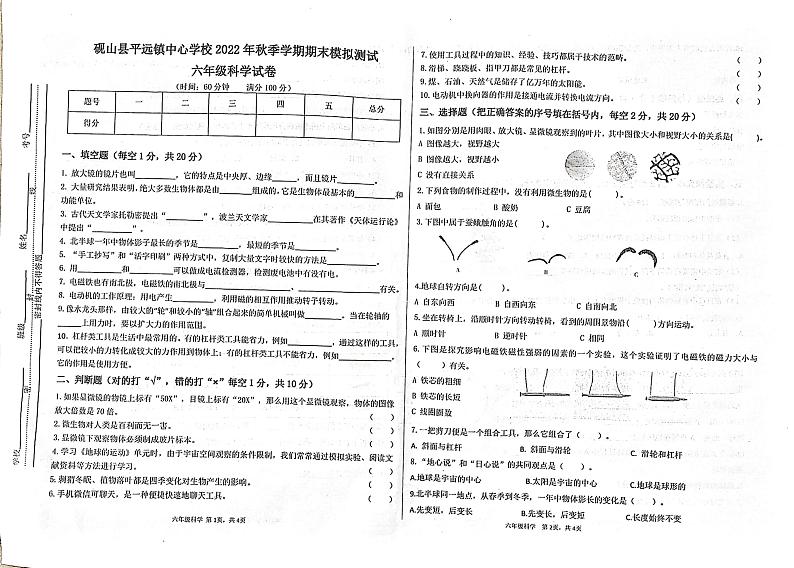 砚山县平远镇中心学校 2022 年秋季学期期末模拟测试
六年级科学试卷
(时间:60 分钟 满分 100 分)
题号 一 二 三 四 五 总分
得分
一、填空题(每空 1 分,共 20 分)
1. 放大镜的镜片也叫________,它的特点是中央厚、边缘______,而且镜片________。
2. 大量研究结果表明,绝大多数生物体都是由________组成的,它是生物体最基本的________和
功能单位。
3. 古代天文学家托勒密提出“________”,波兰天文学家________在其著作《天体运行论》
中提出“________”。
4. 北半球一年中物体影子最长的季节是________,最短的季节是________。
5. “手工抄写”和“活字印刷”两种方式中,复制大量文字时较快的方法是________。
6. 用________和________可以做成电流检测器,检测废电池中有没有电。
7. 电磁铁也有南北极,电磁铁的南北极与________、________有关。
8. 电动机的工作原理:用电产生________,利用磁的相互作用推动转子转动。
9. 像水龙头那样,由较大的“轮”和较小的“轴”组合起来的简单机械叫做________。当在轮轴的
______上用力时,要以扩大力的作用范围。
10. 杠杆类工具是生活中最常用的。有的杠杆类工具能省力,例如________,通过这样的工具,
可以把较小的力转化成较大的力作用到物体上;有的杠杆类工具不能省力,例如________。
它的作用是使用方便。
二、判断题(对的打“√”,错的打“×”每空 1 分,共 10 分)
1. 如果显微镜的物镜上标有“50X”,目镜上标有“20X”,那么用这个显微镜观察,物体的图像
放大倍数是 70 倍。 ( )
2. 微生物对人类是百利而无一害。 ( )
3. 显微镜下观察物体必须制成玻片标本。 ( )
4. 学习《地球的运动》单元时,由于宇宙空间观察的条件限制,我们常常通过模拟实验、阅读文
献资料等方法进行学习。 ( )
5. 刺猬冬眠、植物落叶都是四季变化对生物产生的影响。 ( )
6. 手机微信可聊天,是一种便捷快速地聊天工具。 ( )
六年级科学 第 1页,共 4页
7. 使用工具过程中的知识、经验、技巧都属于技术的范畴。 ( )
8. 滑梯、跷跷板、指甲刀都是常见的杠杆。 ( )
9. 煤、石油、天然气是储存了亿万年的太阳能。 ( )
10. 电动机中换向器的作用是接通电流并转换电流方向。 ( )
三、选择题(把正确答案的序号填在括号内,每空 2 分,共 20 分)
1. 如图分别是用肉眼、放大镜、显微镜观察到的叶片,其中图像大小和视野大小的关系是( )。
A 图像越大,视野越大
B 图像越大,视野越小
C 没有直接关系
2. 下列食物的制作过程中,没有利用微生物的是( )。
A 面包 B 酸奶 C 豆腐
3. 下图中属于蚕蛾触角的是( )。
A B C
4.地球自转方向是( )。
A 自东向西 B 自西向东 C 自南向北
5. 坐在转椅上,沿顺时针方向转动转椅,看到的周围景物沿( )方向运动。
A 顺时针 B 逆时针 C 相同
6. 下图是探究影响电磁铁磁性强弱的因素的一个实验,这个实验证明了电磁铁的磁力大小与
( )有关。
A 铁芯的粗细
B 铁芯的长短
C 线圈圈数
7. 一把剪刀便是一个组合工具,那么它组合了( )。
A. 斜面与杠杆 B. 斜面与滑轮 C. 滑轮和杠杆
8. “地心说”和“日心说”的共同观点是( )。
A.地球是宇宙的中心 B.太阳是宇宙的中心 C.地球是球形的
9.北半球同一地点,从春季到冬季,一年中物体影长的变化是( )。
A.先变短,后变长 B.先变长,后变短 C.长度始终不变
六年级科学 第 2页,共 4页
学校
班级
姓名
考号
密封线内不得答题
密
封
线